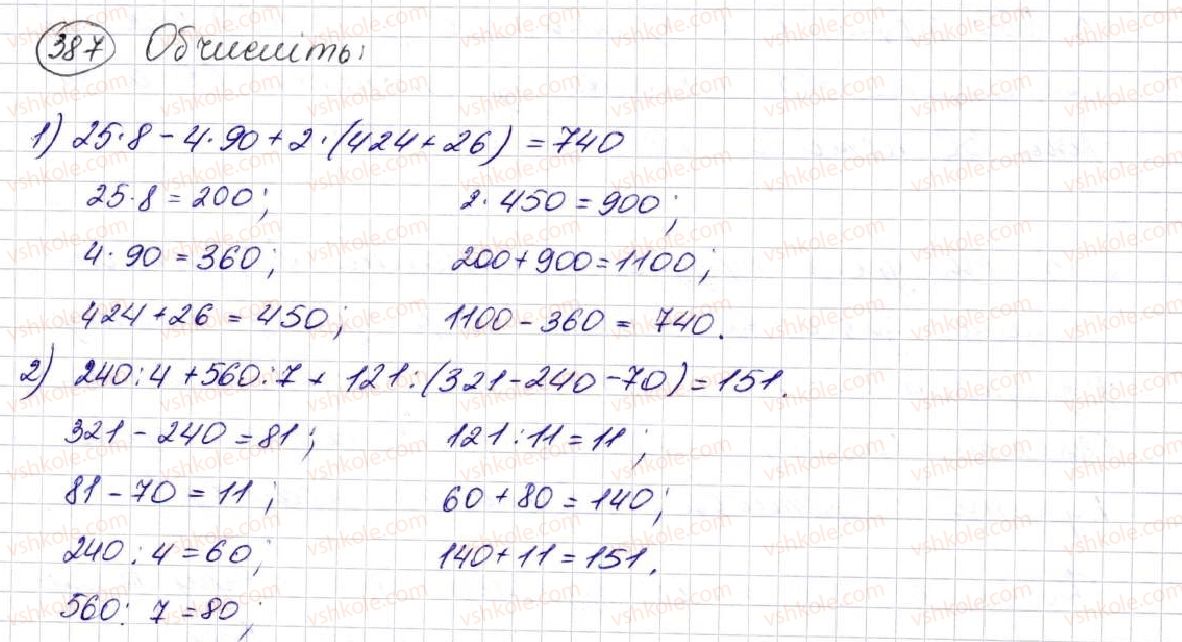 387 Обчисліть:
1) 25·8-4·90+2·(424+26)=740
25·8=200; 2·450=900;
4·90=360; 200+900=1100;
424+26=450; 1100-360=740.
2) 240:4+560:7+121:(321-240-70)=151.
321-240=81; 121:11=11;
81-70=11; 60+80=140;
240:4=60; 140+11=151.
560:7=80;
vshkole.com